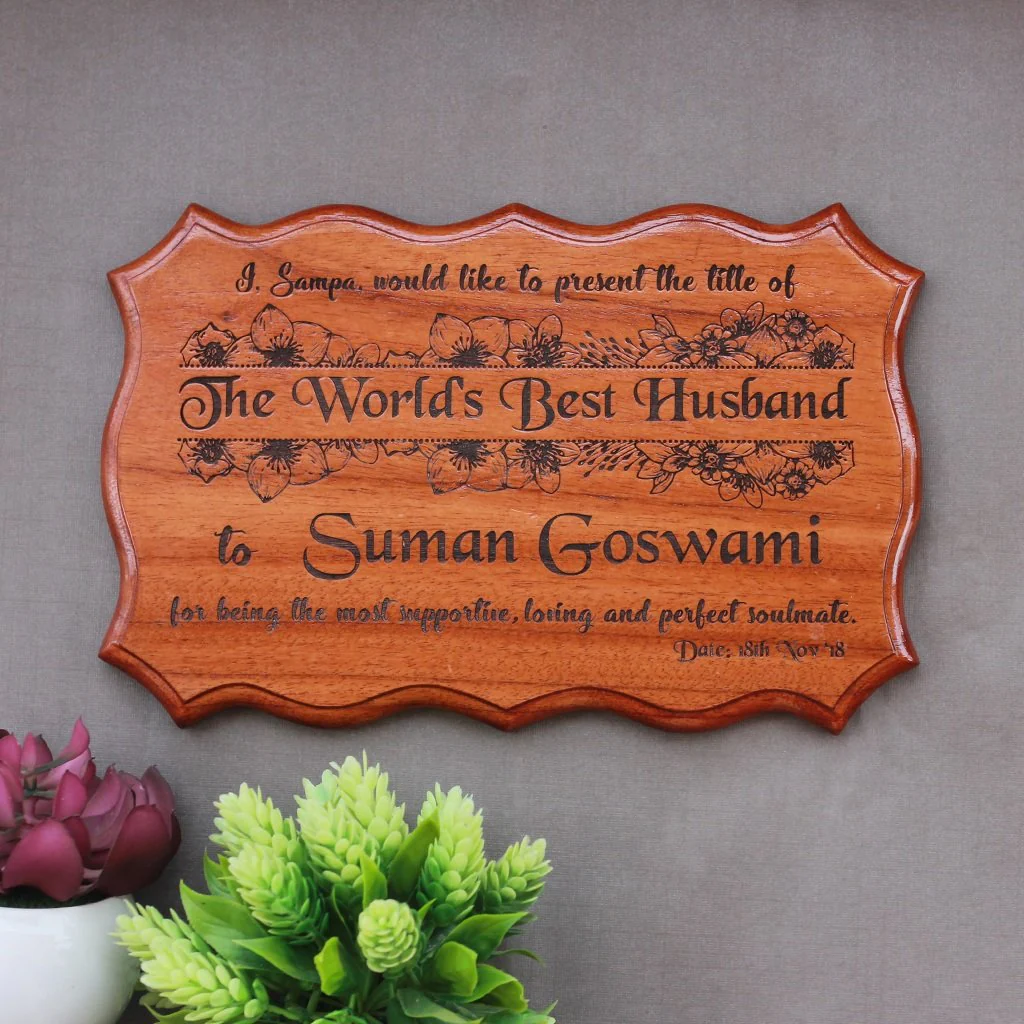 I, Sampa, would like to present the title of
The World's Best Husband
to Suman Goswami
for being the most supportive, loving and perfect soulmate.
Date: 18th Nov '18